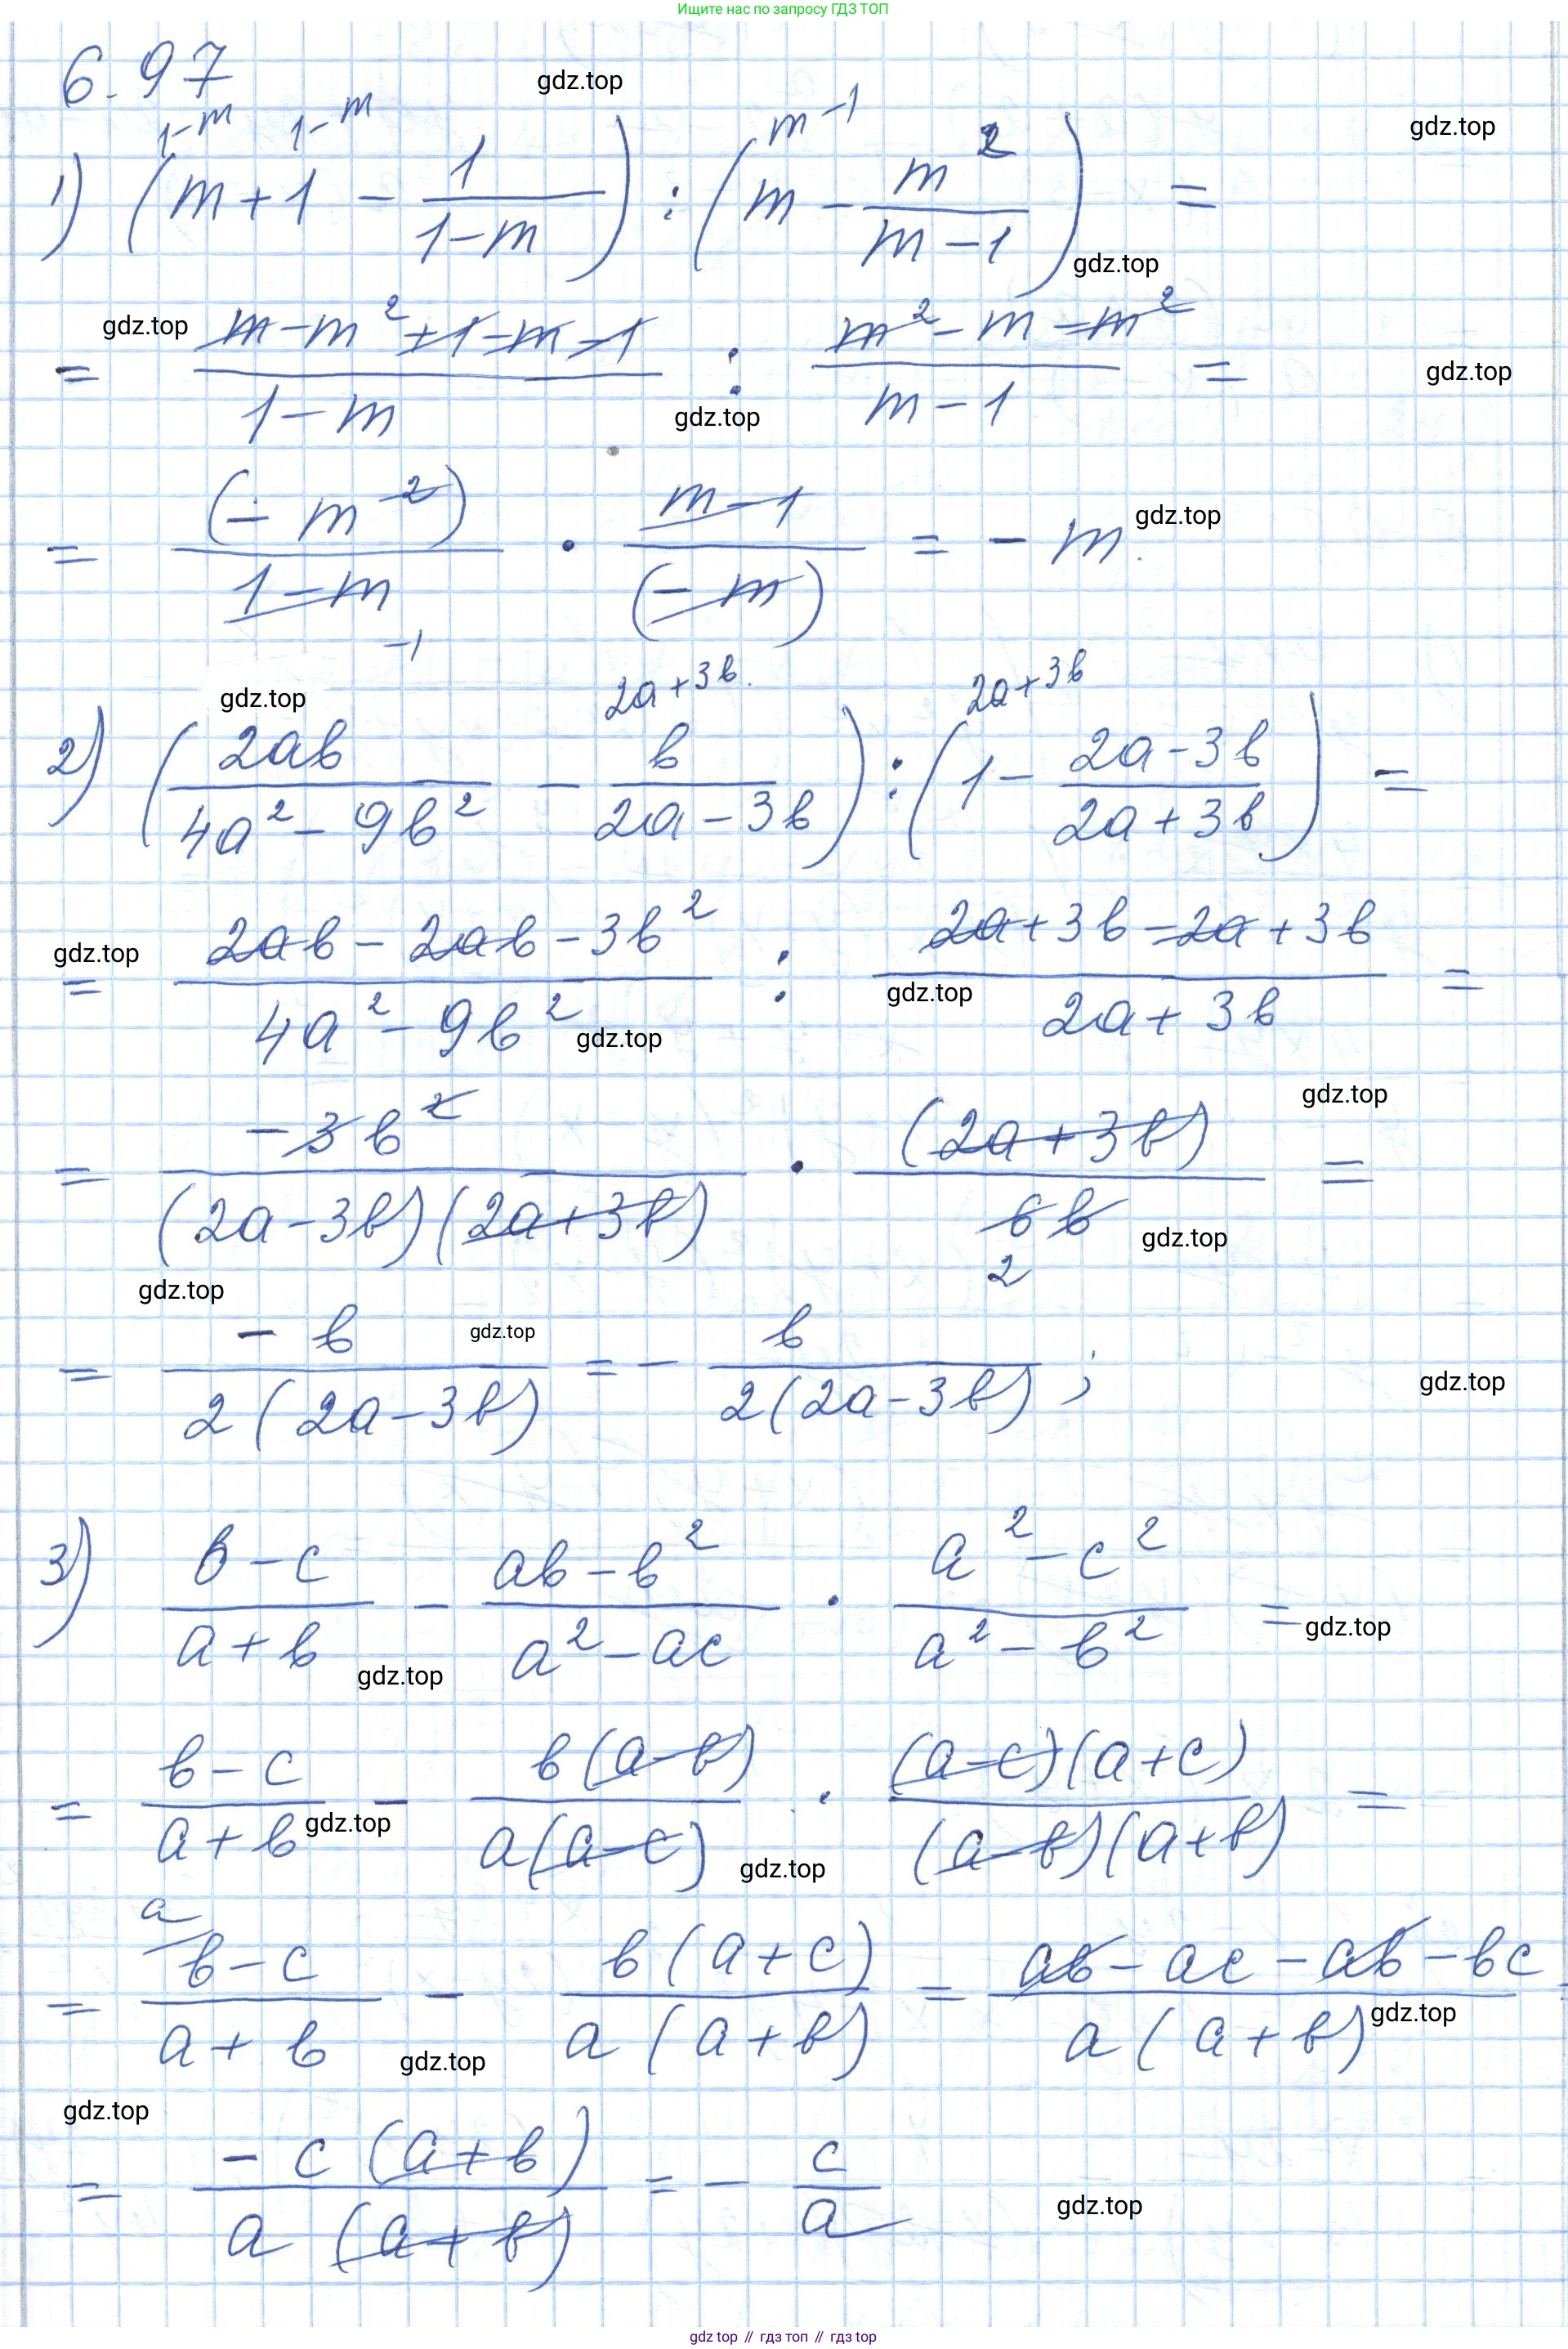 Ищите нас по запросу ГДЗ ТОП
6.97
gdz.top
1-m 1-m m-1
gdz.top
1) (m+1 - 1/(1-m)) : (m - m²/(m-1)) =
gdz.top
gdz.top
= (m-m²+1-m-1)/(1-m) : (m²-m-m²)/(m-1) =
gdz.top
gdz.top
= (-m²)/(1-m) · (m-1)/(-m) = -m.
gdz.top
-1
gdz.top
2a+3b 2a+3b
2) (2ab/(4a²-9b²) - b/(2a-3b)) : (1 - (2a-3b)/(2a+3b)) =
gdz.top
= (2ab-2ab-3b²)/(4a²-9b²) : (2a+3b-2a+3b)/(2a+3b) =
gdz.top
gdz.top
gdz.top
= -3b²/((2a-3b)(2a+3b)) · (2a+3b)/6b =
gdz.top
2
gdz.top
gdz.top
= -b/(2(2a-3b)) = - b/(2(2a-3b));
gdz.top
3) (b-c)/(a+b) - (ab-b²)/(a²-ac) · (a²-c²)/(a²-b²) =
gdz.top
gdz.top
= (b-c)/(a+b) - b(a-b)/(a(a-c)) · (a-c)(a+c)/((a-b)(a+b)) =
gdz.top
gdz.top
a
= (b-c)/(a+b) - b(a+c)/(a(a+b)) = (ab-ac-ab-bc)/(a(a+b))
gdz.top
gdz.top
gdz.top
= -c(a+b)/(a(a+b)) = - c/a
gdz.top
gdz.top // гдз топ // гдз top